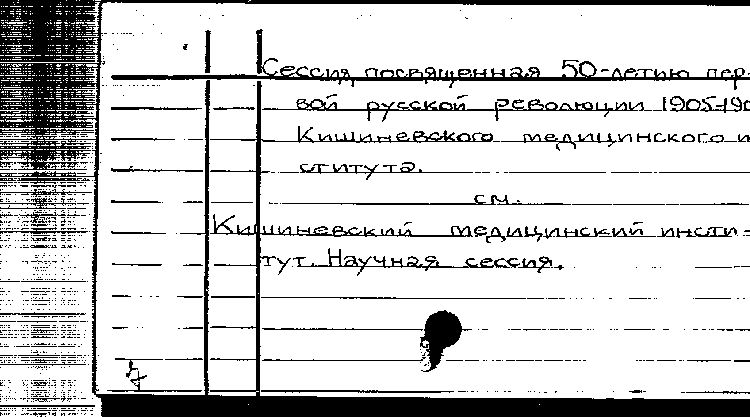 Сессия, посвященная 50-летию пер-
вой русской революции 1905-190
Кишиневского медицинского и
ститута.
см.
Кишиневский медицинский инсти-
тут. Научная сессия.